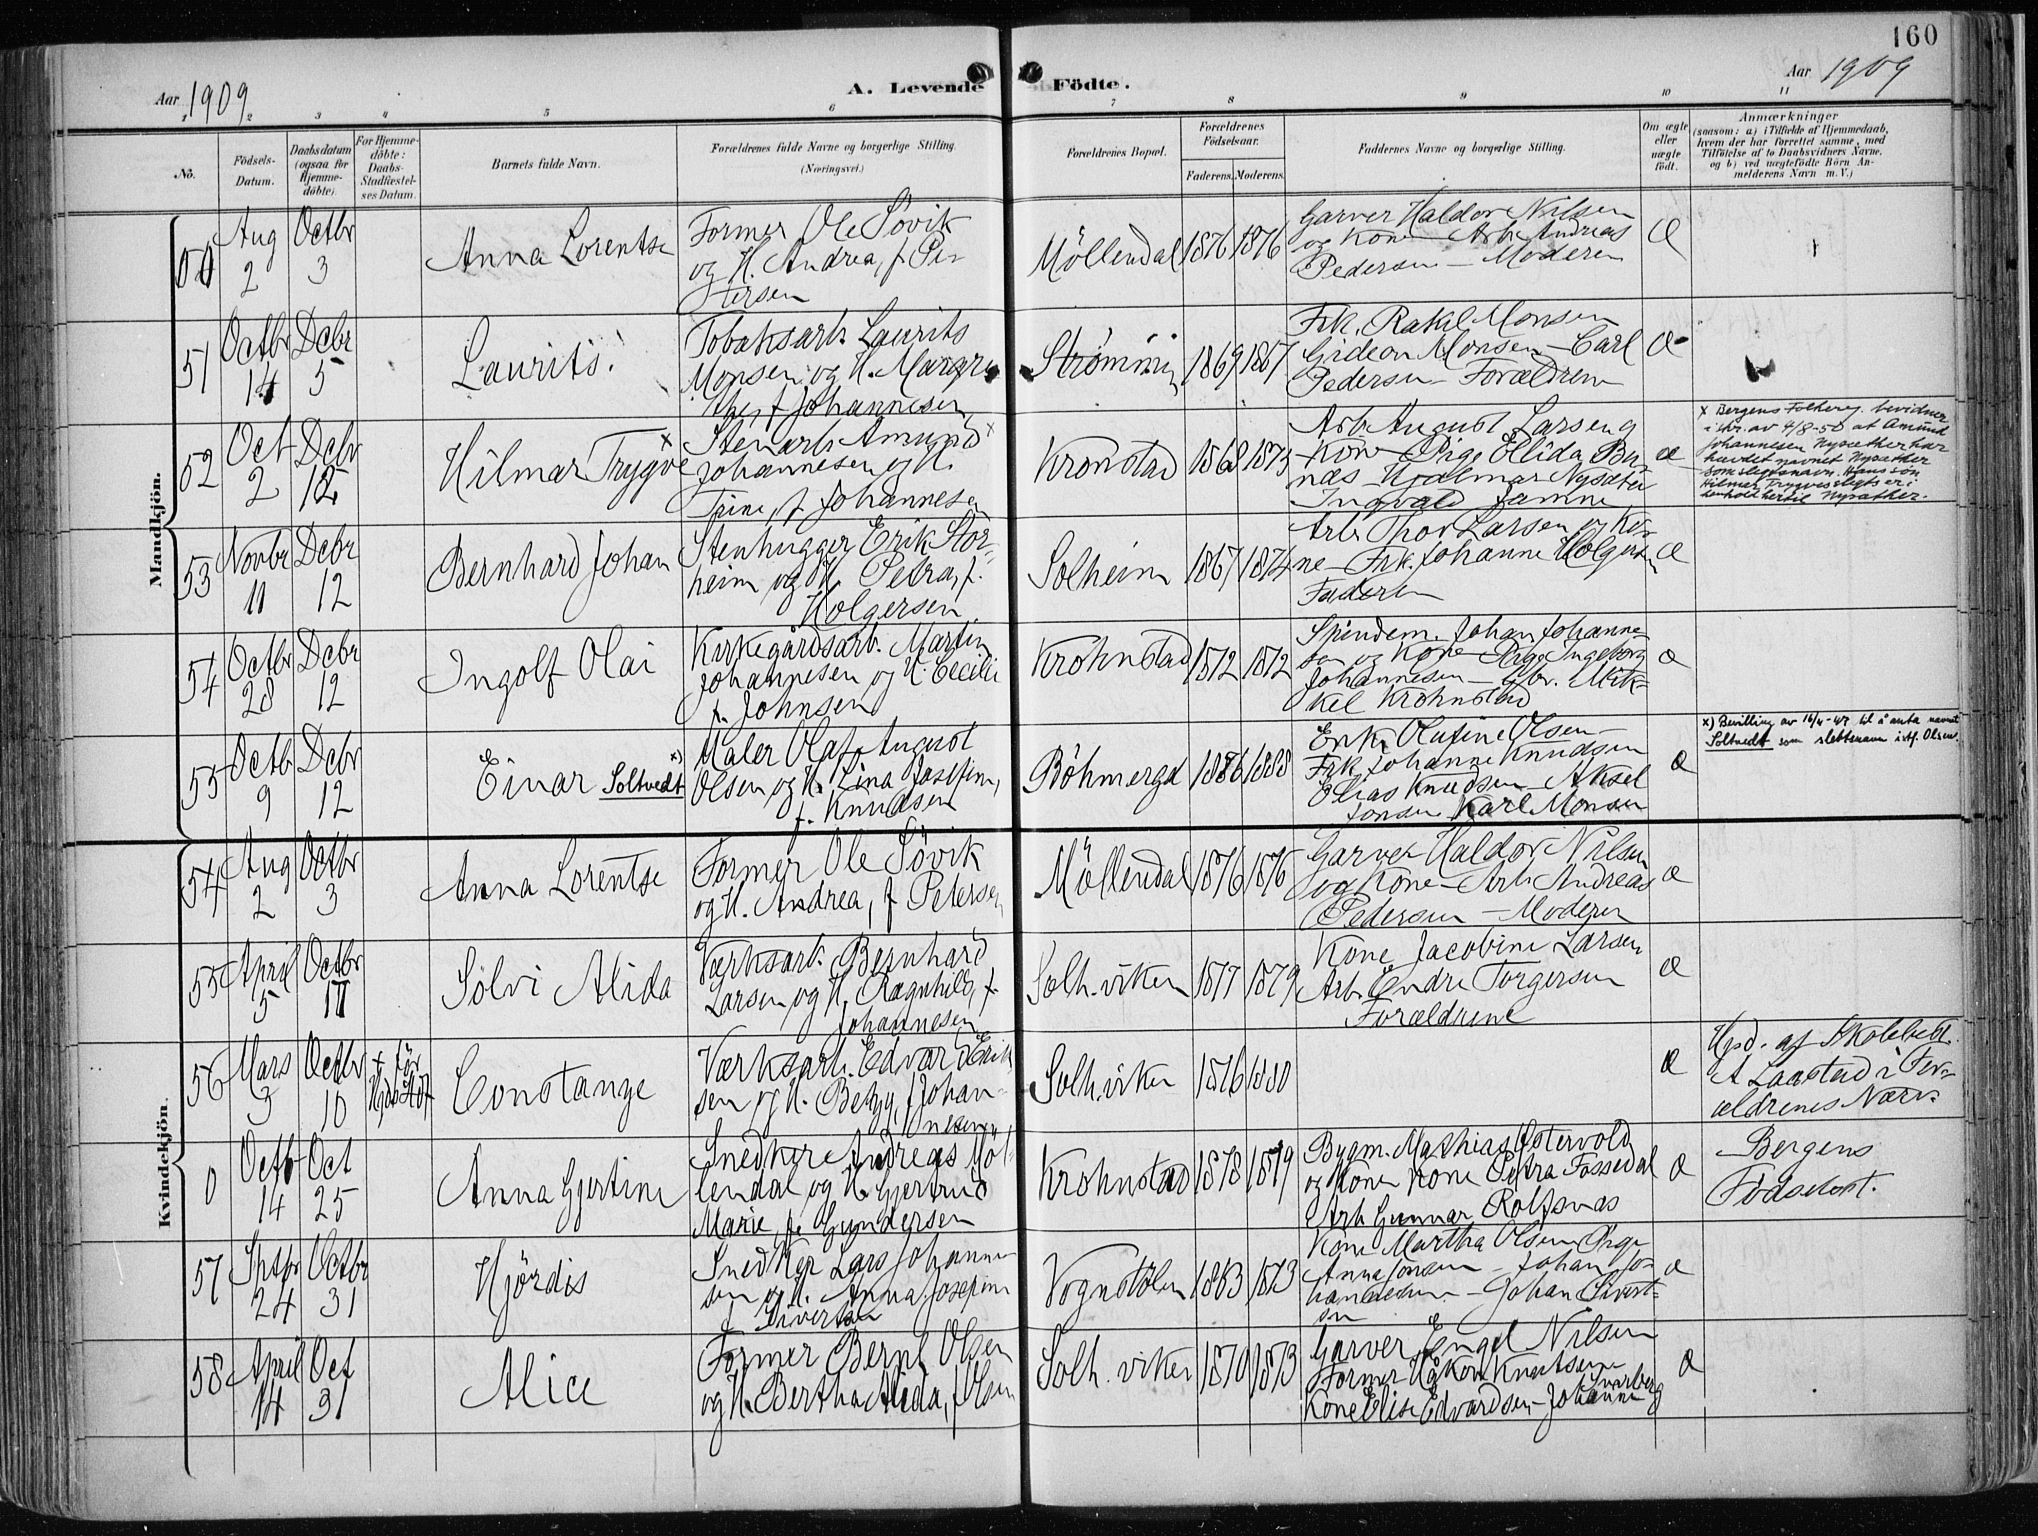 160
Aar 1909
A. Levende Födte.
Aar 1909
1 2 3 4 5 6 7 8 9 10 11
No.
Födsels-
Datum.
Daabsdatum
(ogsaa for
Hjemme-
döbte).
For Hjemme-
döbte:
Daabs-
Stadfæstel-
ses Datum.
Barnets fulde Navn.
Forældrenes fulde Navne og borgerlige Stilling.
(Næringsvei.)
Forældrenes Bopæl.
Forældrenes
Födselsaar.
Faderens. Moderens.
Faddernes Navne og borgerlige Stilling.
Om ægte
eller
uægte
födt.
Anmærkninger
(saasom: a) i Tilfælde af Hjemmedaab,
hvem der har forrettet samme, med
Tilföielse af to Daabsvidners Navne,
og b) ved uægtefödte Börn An-
melderens Navn m. V.)
Mandkjön.
Aug
2
Octbr
3
Anna Lorentse
Former Ole Søvik
og H. Andrea, f. Pe-
tersen
Möllendal
1876 1876
Garver Haldor Nilsen
og Kone - Arb. Andreas
Pedersen - Moderen
Æ
51
Octbr
14
Dcbr
5
Laurits.
Tobaksarb. Laurits
Monsen og H. Margre-
the, f. Johannesen
Strømmen
1869 1867
Frk. Rakel Monsen
Gideon Monsen - Carl
Pedersen - Forældrene
Æ
52
Oct
2
Dcbr
12
Hilmar Trygve x
Stenarb. Amund x
Johannesen og H.
Trine, f. Johannesen
Kronstad
1868 1873
Arb. August Larsen og
Kone - Pige Ellida Ber-
næs - Hjalmar Nysæter
Ingvald Jamne
Æ
x Bergens Folkereg. bevidner
i skr. av 4/8-50 at Amund
Johannesen Nysæther har
hævdet navnet Nysæther
som slegtsnavn. Hans søn
Hilmar Trygves slegtsn. er i
henhold hertil Nysæther.
53
Novbr
11
Dcbr
12
Bernhard Johan
Stenhugger Erik Stor-
heim og H. Petra, f.
Holgersen
Solheim
1867 1874
Arb. Thor Larsen og Ko-
ne - Frk. Johanne Holgersen
Faderen
Æ
54
Octbr
28
Dcbr
12
Ingolf Olai
Kirkegårdsarb. Martin
Johannesen og H. Cecilie
f. Johnsen
Krohnstad
1872 1872
Spindem. Johan Johanne-
sen og Kone - Pige Ingeborg
Johannesen - Gbr. Mik-
kel Krohnstad
Æ
55
Octb
9
Dcbr
12
Einar Soltvedt x)
Maler Olaf August
Olsen og H. Lina Josefine,
f. Knudsen
Böhmergd
1886 1888
Enke Olufine Olsen -
Frk. Johanne Knudsen
Elias Knudsen - Aksel
Jonsen Karl Monsen
Æ
x) Bevilling av 16/4-47 til å anta navnet
Soltvedt som slektsnavn istf. Olsen.
Kvindekjön.
54
Aug
2
Octbr
3
Anna Lorentse
Former Ole Søvik
og H. Andrea, f. Petersen
Möllendal
1876 1876
Garver Haldor Nilsen
og Kone - Arb. Andreas
Pedersen - Moderen
Æ
55
April
5
Octbr
Solvi Alida
Værksarb. Bernhard
Larsen og H. Ragnhild, f.
Johannesen
Solh.viken
1877 1879
Kone Jacobine Larsen
Arb. Endre Torgersen
Forældrene
Æ
56
Mars
3
Octbr
10
Constange
Værksarb. Edvard Erik-
sen og H. Betzy, f. Johan-
nesen
Solh.viken
1876 1880
Æ
Hjd. af Skolebest.
A Laastad i For-
ældrenes Nærv.
0
Octb
14
Oct
25
Anna Gjertine
Snedker Andreas Möl-
lendal og H. Gjertrud
Marie, f. Gundersen
Krohnstad
1878 1879
Bygm. Mathias Østervold
og Kone Kone Petra Fossedal
Arb. Gunnar Rolfsnæs
Æ
Bergens
Födselsst.
57
Septbr
24
Octbr
31
Hjördis
Snedker Lars Johanne-
sen og H. Anna Josefine
f. Sivertsen
Vognstölen
1883 1873
Kone Martha Olsen Pige
Anna Jonsen - Johan Jo-
hannesen - Johan Sivert-
sen
Æ
58
April
14
Oct
31
Alice
Former Bernt Olsen
og H. Bertha Alida, f. Olsen
Solh.viken
1870 1873
Garver Engel Nilsen
Former Håkon Knutsen
Kone Elise Edvardsen - Johanne
Æ